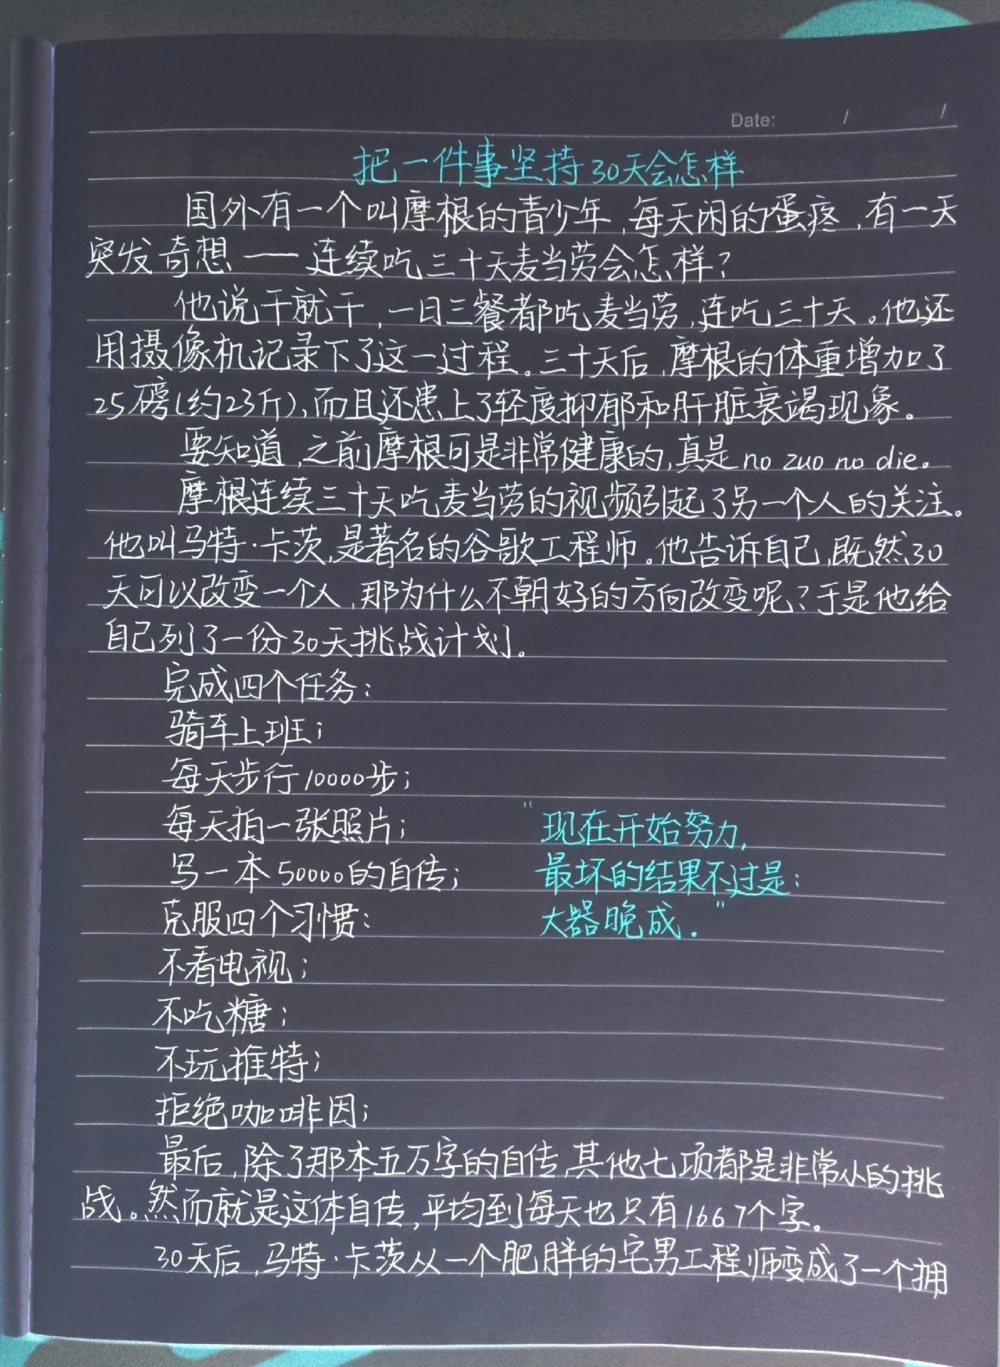 Date: / /
把一件事坚持30天会怎样
国外有一个叫摩根的青少年,每天闲的蛋疼,有一天
突发奇想——连续吃三十天麦当劳会怎样?
他说干就干,一日三餐都吃麦当劳,连吃三十天。他还
用摄像机记录下了这一过程。三十天后,摩根的体重增加了
25磅(约23斤),而且还患上了轻度抑郁和肝脏衰竭现象。
要知道,之前摩根可是非常健康的,真是no zuo no die。
摩根连续三十天吃麦当劳的视频引起了另一个人的关注。
他叫马特·卡茨,是著名的谷歌工程师。他告诉自己,既然30
天可以改变一个人,那为什么不朝好的方向改变呢?于是他给
自己列了一份30天挑战计划。
完成四个任务:
骑车上班;
每天步行10000步;
每天拍一张照片;
写一本50000的自传;
克服四个习惯:
不看电视;
不吃糖;
不玩推特;
拒绝咖啡因;
"现在开始努力,
最坏的结果不过是:
大器晚成."
最后,除了那本五万字的自传,其他七项都是非常小的挑
战。然而就是这体自传,平均到每天也只有1667个字。
30天后,马特·卡茨从一个肥胖的宅男工程师变成了一个拥